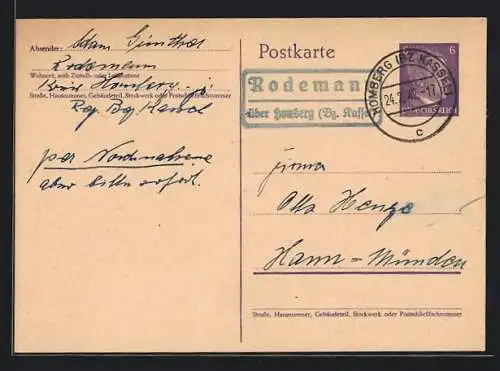 Absender: Adam Günther
Rodemann
Wohnort, auch Zustell- oder Leitpostamt
Kreis Homberg
Straße, Hausnummer, Gebäudeteil, Stockwerk oder Postschließfachnummer
Bg Kassel
per Nachnahme
aber bitte sofort.
Postkarte
6
DEUTSCHES REICH
HOMBERG (BZ. KASSEL)
24.
-17
c
Rodemann
über Homberg (Bz. Kassel)
Firma
Otto Henze
Hann-Münden
Straße, Hausnummer, Gebäudeteil, Stockwerk oder Postschließfachnummer